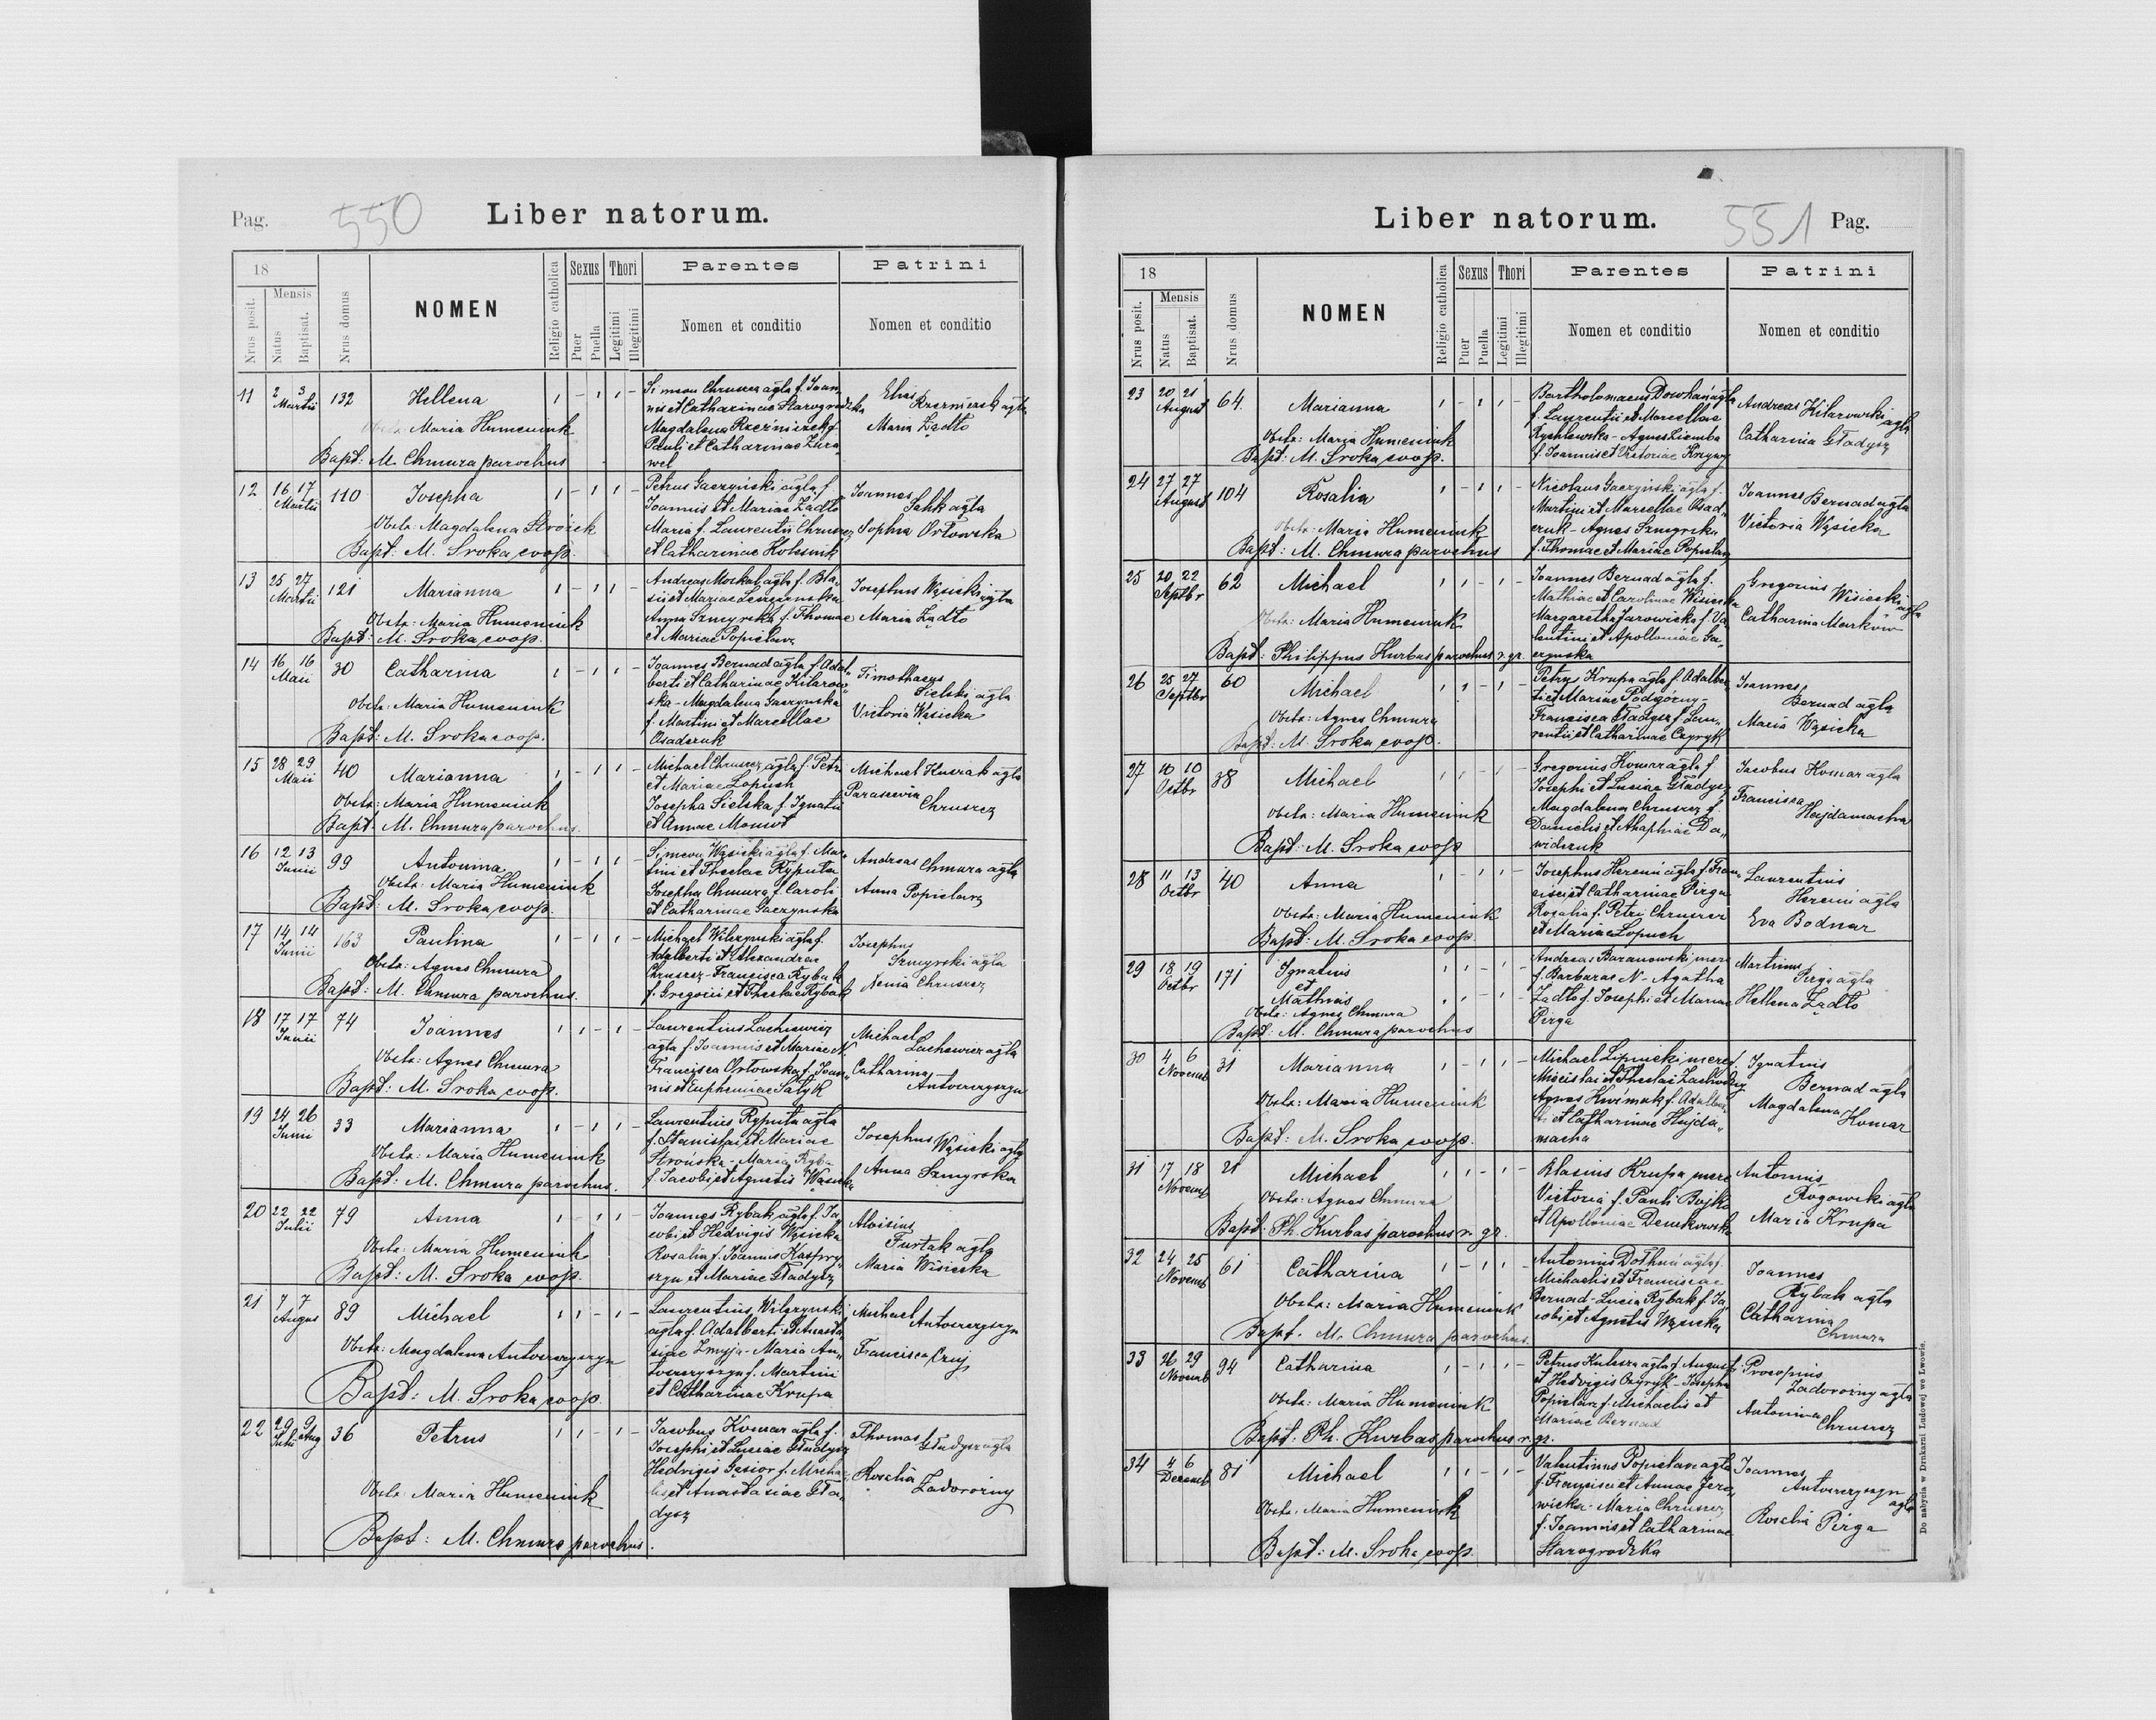 Pag.
550
Liber natorum.
18
Nrus posit.
Mensis
Natus
Baptisat.
Nrus domus
NOMEN
Religio catholica
Sexus
Puer
Puella
Thori
Legitimi
Illegitimi
Parentes
Nomen et conditio
Patrini
Nomen et conditio
11 2 3 Martii 132 Hellena
Maria Humeniuk
Bapt: M. Chmura parochus
Simeon Chruszcz agla f. Joan
nis et Catharinae Starogrodzka
Magdalena Rzeźniczek f.
Pauli et Catharinae Żura
wel
Elias Rzeźniczek agla
Maria Żądło
12 16 17 Martii 110 Josepha
Obstx: Magdalena Strózek
Bapt: M. Sroka coop.
Petrus Gaczyński agla f.
Joannis et Mariae Żądło
Maria f. Laurentii Chruszcz
et Catharinae Kolesnik
Joannes
agla
Sophia Orłowska
13 25 27 Martii 121 Marianna
Obstx: Maria Humeniuk
Bapt: M. Sroka coop.
Andreas Moskal agla f. Bla
sii et Mariae
Anna Szmyrska f. Thomae
et Mariae Popielarz
Josephus Wąsicki agla
Maria Żądło
14 16 16 Maii 30 Catharina
Obstx: Maria Humeniuk
Bapt: M. Sroka coop.
Joannes Bernad agla f. Adal
berti et Catharinae Kilarow
ska - Magdalena Gaczynska
f. Martini et Marcellae
Osadczuk
Timothaeus
Sielski agla
Victoria Wąsicka
15 28 29 Maii 40 Marianna
Obstx: Maria Humeniuk
Bapt: M. Chmura parochus.
Michael Chruszcz agla f. Petri
et Mariae Łopuch
Josepha Sielska f. Ignatii
et Annae
Michael Kusiak agla
Parascevia
Chruszcz
16 12 13 Junii 99 Antonina
Obstx: Maria Humeniuk
Bapt: M. Sroka coop.
Simeon Wąsicki agla f. Mar
tini et Theclae Ryputa
Josepha Chmura f. Caroli
et Catharinae Gaczynska
Andreas Chmura agla
Anna Popielarz
17 14 14 Junii 163 Paulina
Obstx: Agnes Chmura
Bapt: M. Chmura parochus.
Michael Wilczynski agla f.
Adalberti et Alexandrae
Chruszcz - Francisca Rybak
f. Gregorii et Theclae Rybak
Josephus
Szmyrski agla
Chruszcz
18 17 17 Junii 74 Joannes
Obstx: Agnes Chmura
Bapt: M. Sroka coop.
Laurentius Lachowicz
agla f. Joannis et Mariae N.
Francisca Orłowska f. Joan
nis et Euphemiae Satyk
Michael
Lachowicz agla
Catharina
Antoszczyszyn
19 24 26 Junii 33 Marianna
Obstx: Maria Humeniuk
Bapt: M. Chmura parochus.
Laurentius Ryputa agla
f. Stanislai et Mariae
Strońska - Maria Ryba
f. Jacobi et Agnetis Wąsicka
Josephus Wąsicki agla
Anna Szmyrska
20 22 22 Julii 79 Anna
Obstx: Maria Humeniuk
Bapt: M. Sroka coop.
Joannes Rybak agla f. Ja
cobi et Hedvigis Wąsicka
Rosalia f. Joannis Kaspry
szyn et Mariae Gładysz
Aloisius
Furtak agla
Maria Wisicka
21 7 7 August 89 Michael
Obstx: Magdalena Antoszczyszyn
Bapt: M. Sroka coop.
Laurentius Wilczynski
agla f. Adalberti et Anasta
siae Żmyja - Maria An
toszczyszyn f. Martini
et Catharinae Krupa
Michael
Antoszczyszyn
Francisca
22 29 Julii 9 Aug 36 Petrus
Obstx: Maria Humeniuk
Bapt: M. Chmura parochus.
Jacobus Komar agla f.
Josephi et Luciae Gładysz
Hedvigis Gąsior f. Micha
lis et Anastasiae Gła
dysz
Thomas
Gładysz agla
Rosalia
Zadorożny
Liber natorum.
551
Pag.
18
Nrus posit.
Mensis
Natus
Baptisat.
Nrus domus
NOMEN
Religio catholica
Sexus
Puer
Puella
Thori
Legitimi
Illegitimi
Parentes
Nomen et conditio
Patrini
Nomen et conditio
23 20 21 August 64. Marianna
Obstx: Maria Humeniuk
Bapt: M. Sroka coop.
Bartholomaeus Dowhań agla
f. Laurentii et Marcellae
Rychlewska - Agnes Ziemba
f. Joannis et Victoriae Krzywy
Andreas Kilarowski agla
Catharina Gładysz
24 27 27 August 104 Rosalia
Obstx: Maria Humeniuk
Bapt: M. Chmura parochus
Nicolaus Gaczyński agla f.
Martini et Marcellae Osad
czuk - Agnes Szmyrska
f. Thomae et Mariae Popielarz
Joannes Bernad agla
Victoria Wąsicka
25 20 22 Septbr 62 Michael
Obstx: Maria Humeniuk
Bapt: Philippus Kurbas parochus r. gr.
Joannes Bernad agla f.
Mathiae et Carolinae Wisiecka
Margaretha Jarowicka f. Va
lentini et Apolloniae Ga
czynska
Gregorius Wisiecki agla
Catharina Marków
26 25 27 Septbr 60 Michael
Obstx: Agnes Chmura
Bapt: M. Sroka coop.
Petrus Krupa agla f. Adalber
ti et Mariae Podgórny -
Francisca Gładysz f. Lau
rentii et Catharinae Czyryk
Joannes
Bernad agla
Maria Wąsicka
27 10 10 Octbr 38 Michael
Obstx: Maria Humeniuk
Bapt: M. Sroka coop
Gregorius Komar agla f.
Josephi et Luciae Gładysz
Magdalena Chruszcz f.
Danielis et Ahaphiae Da
widczuk
Jacobus Komar agla
Francisca
Hajdamacha
28 11 13 Octbr 40 Anna
Obstx: Maria Humeniuk
Bapt: M. Sroka coop.
Josephus Hereni agla f. Fran
cisci et Catharinae Pirga
Rosalia f. Petri Chruszcz
et Mariae Łopuch
Laurentius
Hereni agla
Eva Bodnar
29 18 19 Octbr 171 Ignatius
et
Mathias
Obstx: Agnes Chmura
Bapt: M. Chmura parochus
Andreas Baranowski merc
f. Barbarae N - Agatha
Żądło f. Josephi et Mariae
Pirga
Martinus
Pirga agla
Hellena Żądło
30 4 6 Novemb 31 Marianna
Obstx: Maria Humeniuk
Bapt: M. Sroka coop.
Michael Lipnicki merc f.
Agnes f. Adalber
ti et Catharinae Hajda
macha
Ignatius
Bernad agla
Magdalena
Komar
31 17 18 Novemb 21 Michael
Obstx: Agnes Chmura
Bapt: Ph. Kurbas parochus r. gr.
Blasius Krupa merc
Victoria f. Pauli Bojko
et Apolloniae Demkowska
Antonius
Rogowski agla
Maria Krupa
32 24 25 Novemb 61 Catharina
Obstx: Maria Humeniuk
Bapt. M. Chmura parochus.
Antonius Dołhań agla f.
Michaelis et Franciscae
Bernad - Lucia Rybak f. Ja
cobi et Agnetis Wąsicka
Joannes
Rybak agla
Catharina
Chmura
33 26 29 Novemb 94 Catharina
Obstx: Maria Humeniuk
Bapt: Ph. Kurbas parochus r. gr.
Petrus Kulesza agla f. August
et Hedvigis Czyryk - Josepha
Popielarz f. Michaelis et
Mariae Bernad
Procopius
Zadorożny agla
Antonina
Chruszcz
34 4 6 Decemb 81 Michael
Obstx: Maria Humeniuk
Bapt: M. Sroka coop.
Valentinus Popielarz agla
f. Francisci et Annae Jaro
wicka - Maria Chruszcz
f. Joannis et Catharinae
Starogrodzka
Joannes
Antoszczyszyn
agla
Rosalia Pirga
Do nabycia w Drukarni Ludowej we Lwowie.